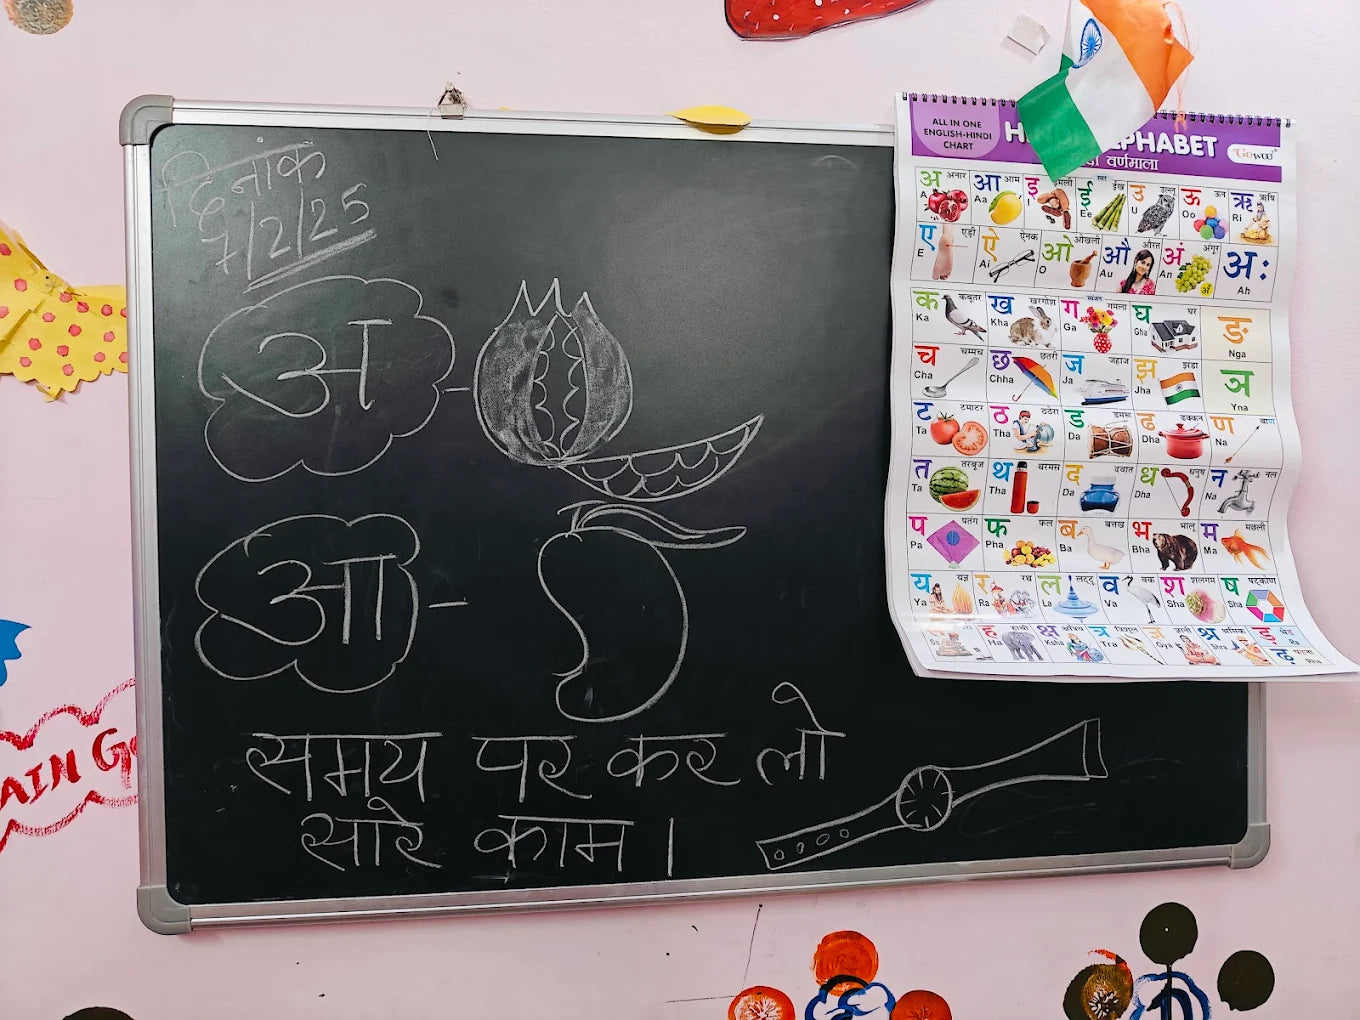 दिनांक
7/2/25
अ -
आ -
समय पर कर लो
सारे काम ।
ALL IN ONE
ENGLISH-HINDI
CHART
PHABET
Gowoo
वर्णमाला
अ अनार A
आ आम Aa
इ इमली
ई ईख Ee
उ उल्लू U
ऊ ऊन Oo
ऋ ऋषि Ri
ए एड़ी E
ऐ ऐनक Ai
ओ ओखली O
औ औरत Au
अं अंगूर An
अः Ah
क कबूतर Ka
ख खरगोश Kha
ग गमला Ga
घ घर Gha
ङ Nga
च चम्मच Cha
छ छतरी Chha
ज जहाज Ja
झ झंडा Jha
ञ Yna
ट टमाटर Ta
ठ ठठेरा Tha
ड डमरू Da
ढ ढक्कन Dha
ण बाण Na
त तरबूज Ta
थ थरमस Tha
द दवात Da
ध धनुष Dha
न नल Na
प पतंग Pa
फ फल Pha
ब बत्तख Ba
भ भालू Bha
म मछली Ma
य यज्ञ Ya
र रथ Ra
ल लट्टू La
व वक Va
श शलगम Sha
ष षट्कोण Sha
ह हाथी Ha
क्ष क्षत्रिय Ksha
त्र त्रिशूल Tra
ज्ञानी Gya
श्र श्रमिक Shra
ड़ Ra
ढ़ Rha
AIN G